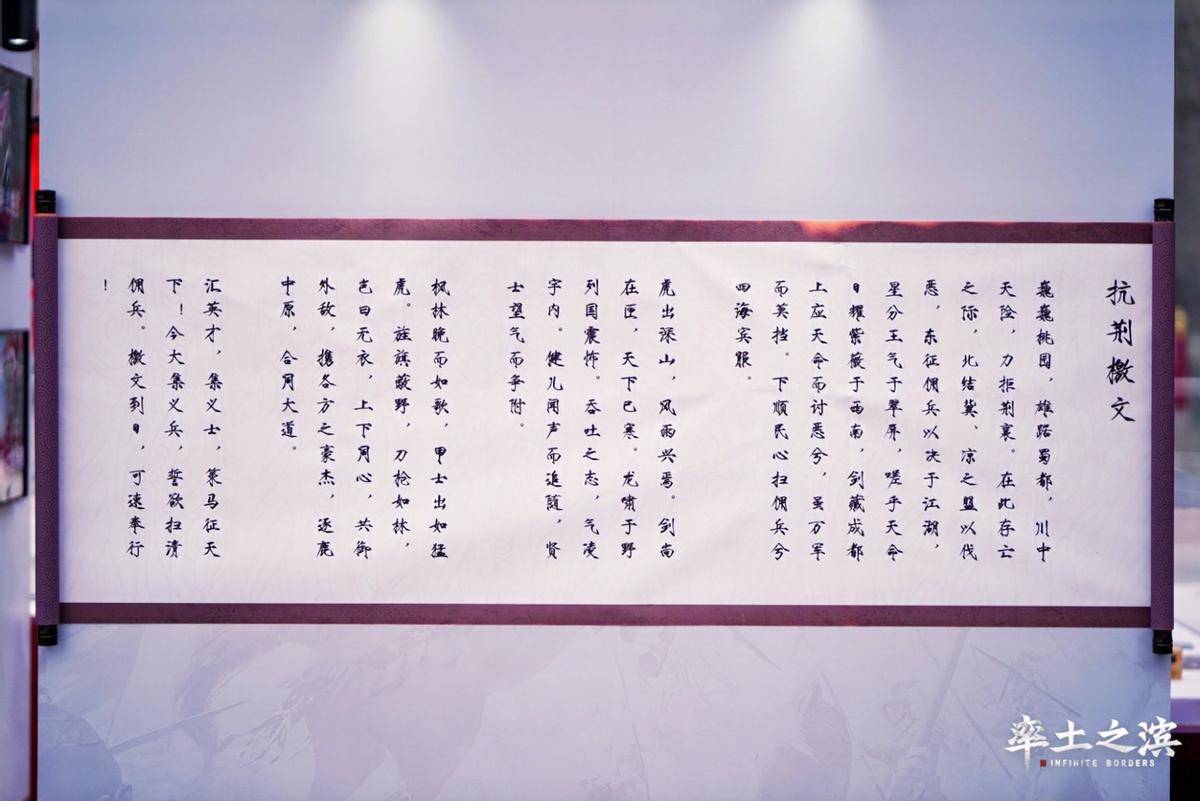 抗荆檄文
巍巍桃园，雄踞蜀都，川中
天险，力拒荆襄。在此存亡
之际，北结冀、凉之盟以伐
恶，东征佣兵以决于江湖，
星分王气于翠屏，嗟乎天命
日耀紫薇于西南，剑藏成都
上应天命而讨恶兮，虽万军
而英挡。下顺民心扫佣兵兮
四海宾服。
虎出深山，风雨兴焉。剑尚
在匣，天下已寒。龙啸于野
列国震怖。吞吐之志，气凌
宇内。健儿闻声而追随，贤
士望气而争附。
枫林晚而如歌，甲士出如猛
虎。旌旗蔽野，刀枪如林，
岂曰无衣，上下同心，共御
外敌，携各方之豪杰，逐鹿
中原，合同大道。
汇英才，集义士，策马征天
下！今大集义兵，誓欲扫清
佣兵。檄文列日，可速奉行
！
率土之滨
INFINITE BORDERS